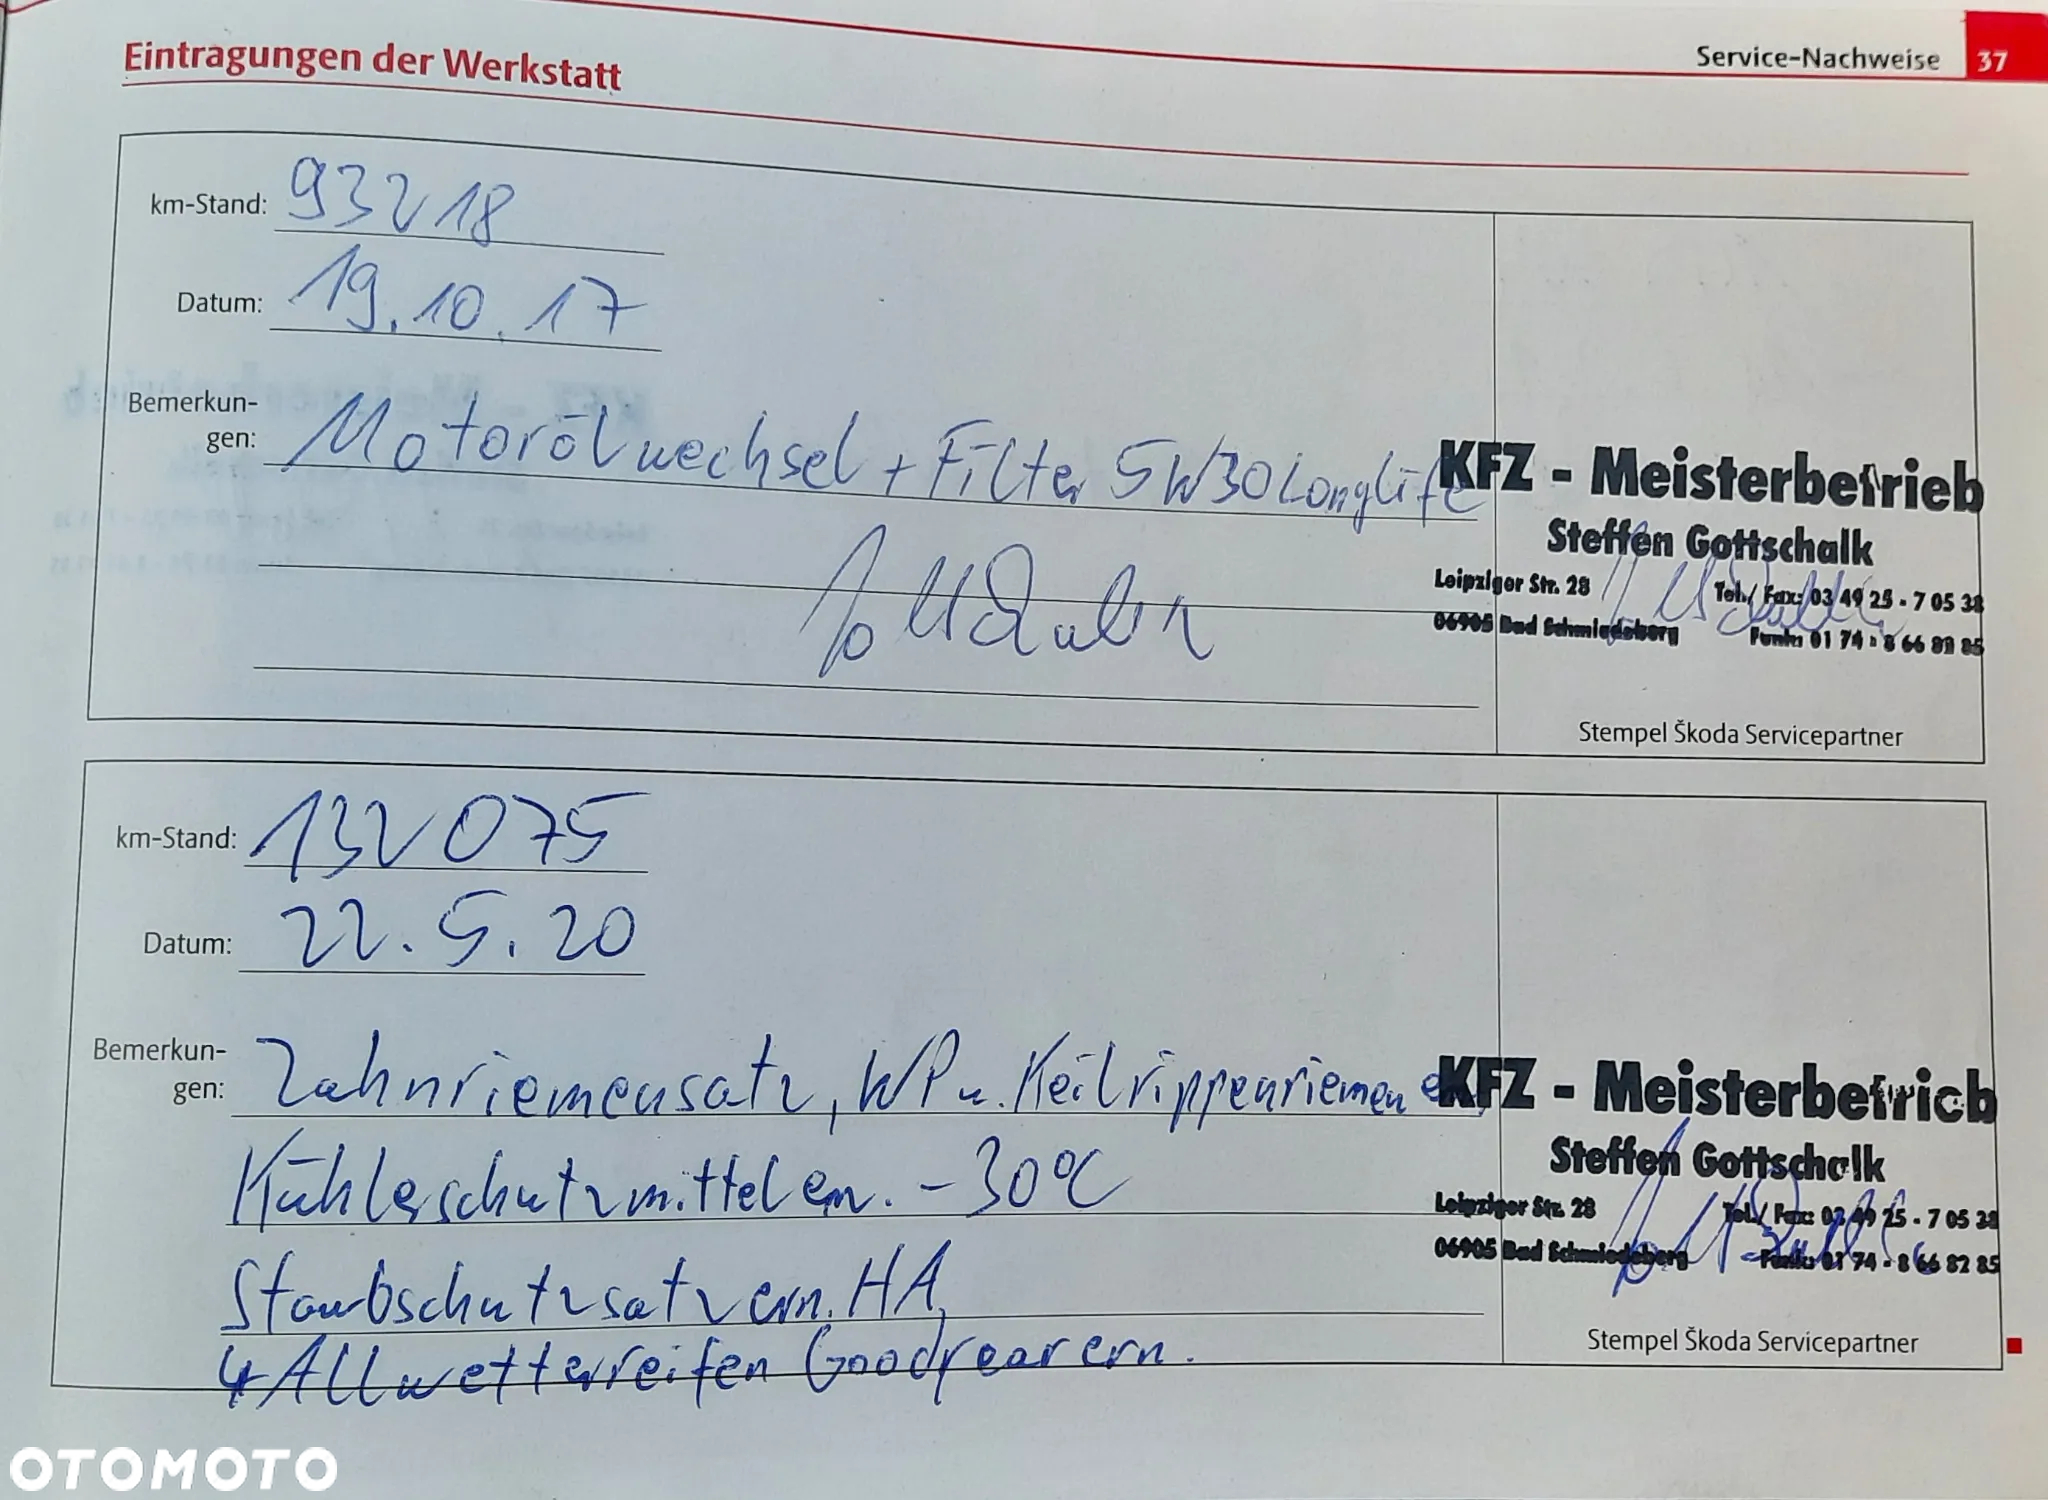 Eintragungen der Werkstatt
Service-Nachweise 37
km-Stand: 93218
Datum: 19.10.17
Bemerkun-
gen: Motorölwechsel + Filter 5W30 Longlife
KFZ - Meisterbetrieb
Steffen Gottschalk
Leipziger Str. 28 Tel./ Fax: 03 49 25 - 7 05 38
06905 Bad Schmiedeberg Funk: 01 74 - 8 66 82 85
Stempel Škoda Servicepartner
km-Stand: 132075
Datum: 22.5.20
Bemerkun-
gen: Zahnriemensatz, WP u. Keilrippenriemen
Kühlerschutzmittel ern. -30°C
Staubschutzsatz ern. HA,
4 Allwetterreifen Goodyear ern.
KFZ - Meisterbetrieb
Steffen Gottschalk
Leipziger Str. 28 Tel./ Fax: 03 49 25 - 7 05 38
06905 Bad Schmiedeberg Funk: 01 74 - 8 66 82 85
Stempel Škoda Servicepartner
OTOMOTO